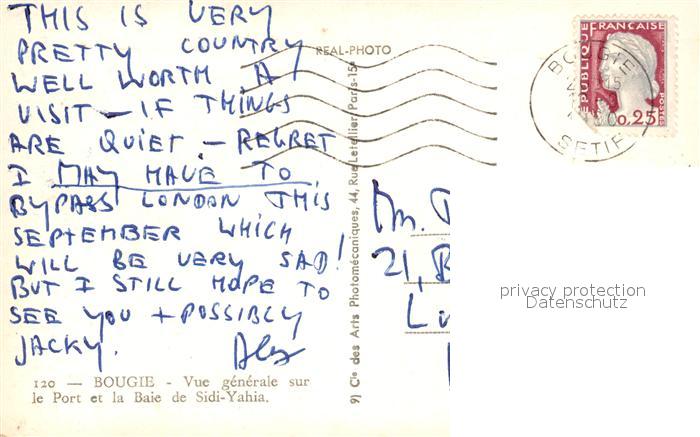 THIS IS VERY
PRETTY COUNTRY
WELL WORTH A
VISIT — IF THINGS
ARE QUIET — REGRET
I MAY HAVE TO
BYPASS LONDON THIS
SEPTEMBER WHICH
WILL BE VERY SAD!
BUT I STILL HOPE TO
SEE YOU + POSSIBLY
JACKY. Alex
120 — BOUGIE - Vue générale sur
le Port et la Baie de Sidi-Yahia.
REAL-PHOTO
9) Cie des Arts Photomécaniques, 44, Rue Letellier, Paris-15e
REPUBLIQUE FRANÇAISE
POSTES
0,25
BOUGIE
SETIF
21,
privacy protection
Datenschutz